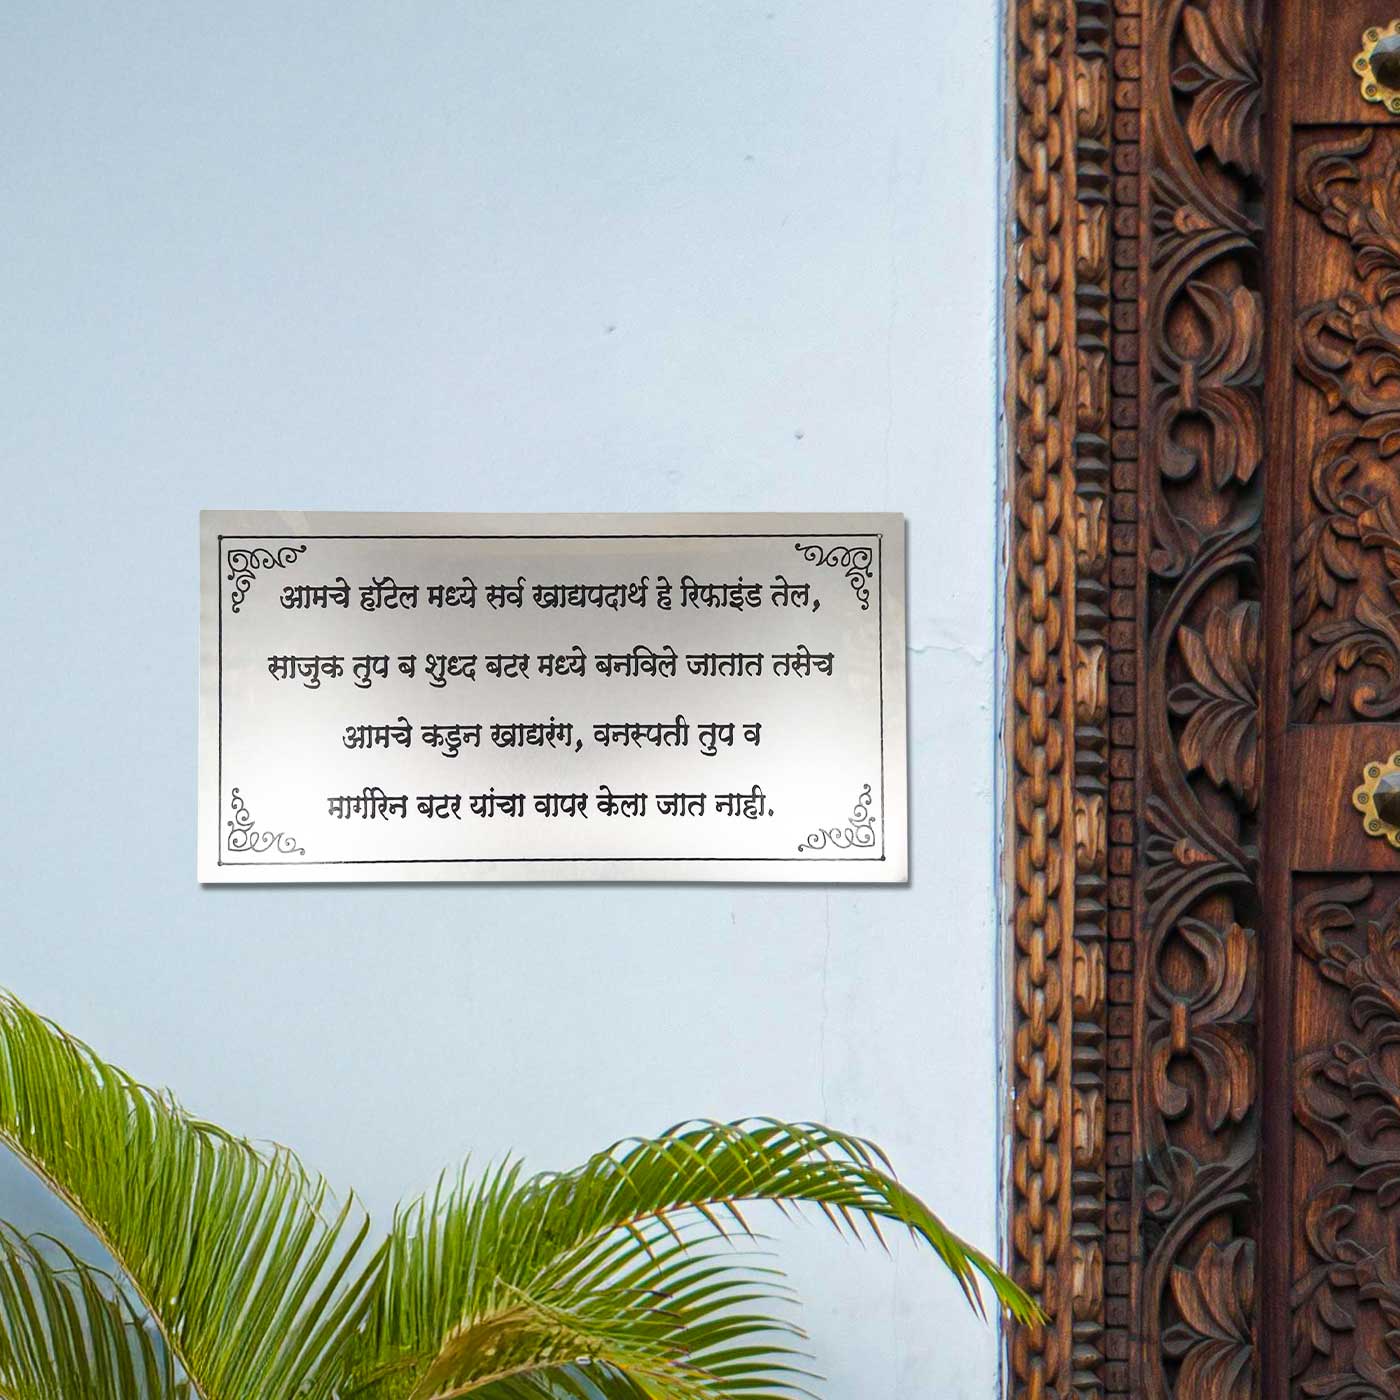 आमचे हॉटेल मध्ये सर्व खाद्यपदार्थ हे रिफाइंड तेल,
साजुक तुप ब शुध्द बटर मध्ये बनविले जातात तसेच
आमचे कडुन खाद्यरंग, वनस्पती तुप व
मार्गरिन बटर यांचा वापर केला जात नाही.